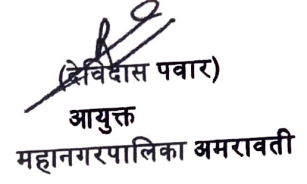 (देविदास पवार)
आयुक्त
महानगरपालिका अमरावती